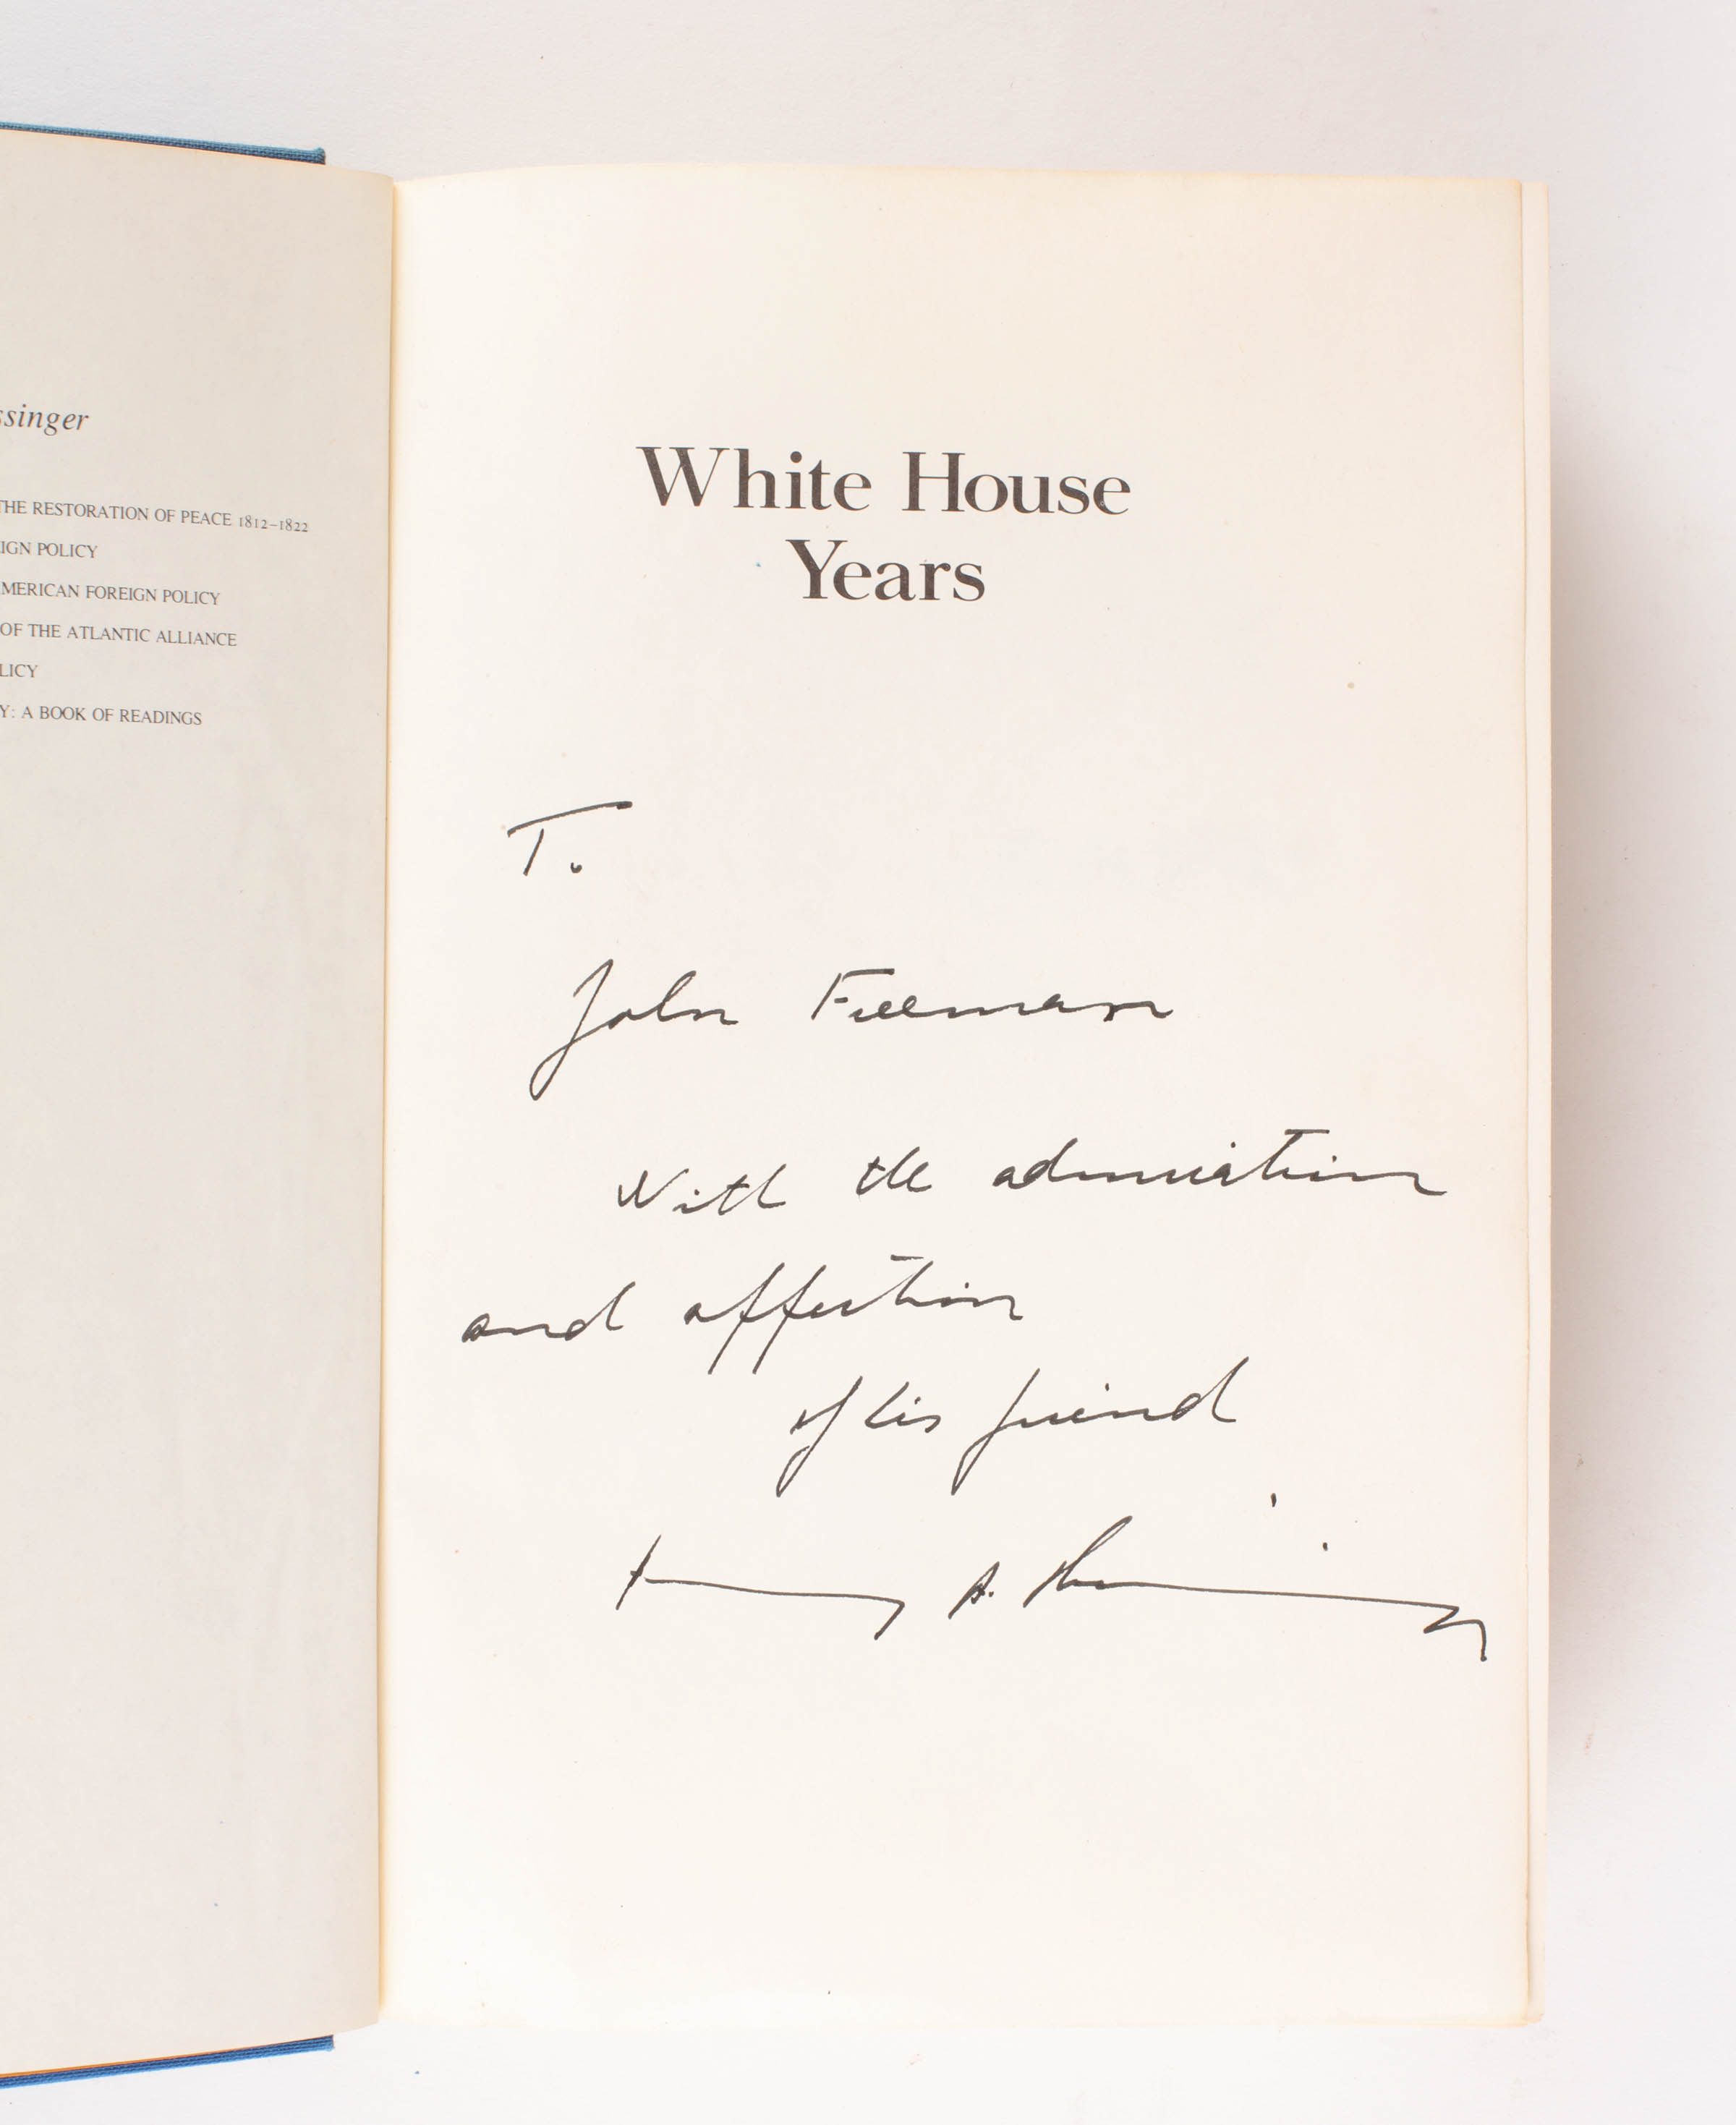 ssinger
THE RESTORATION OF PEACE 1812–1822
IGN POLICY
MERICAN FOREIGN POLICY
OF THE ATLANTIC ALLIANCE
LICY
Y: A BOOK OF READINGS
White House
Years
To
John Freeman
With the admiration
and affection
of his friend
Henry A. Kissinger